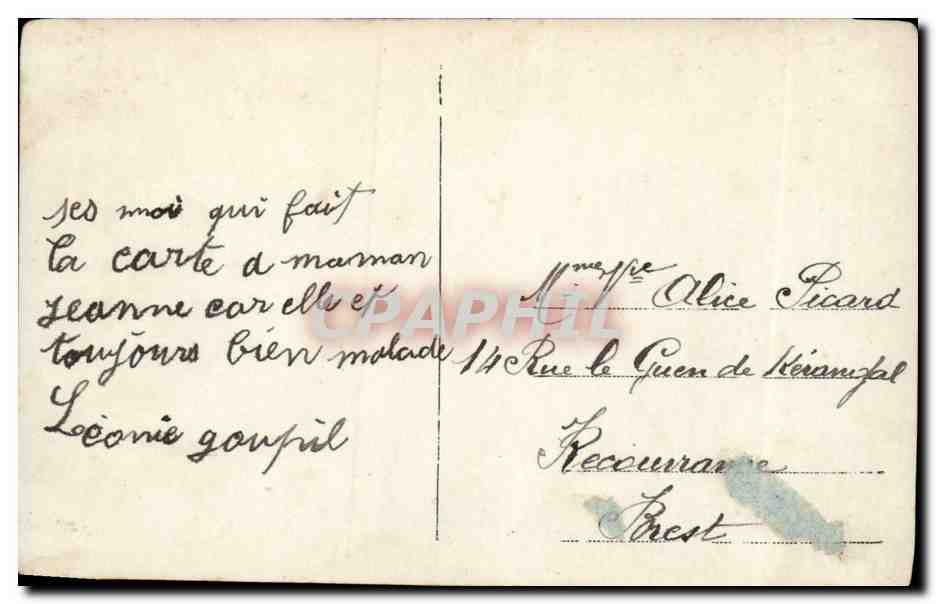 ses moi qui fait
la carte a maman
jeanne car elle et
toujours bien malade
Léonie goupil
Mme Vve Alice Picard
14 Rue le Guen de Kérangal
Recouvrance
Brest
CPAPHIL